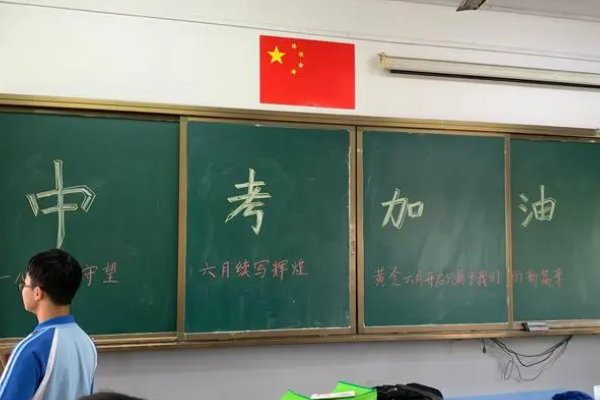 中考加油
一 守望 六月续写辉煌 黄金六月开启 属于我们 的新篇章